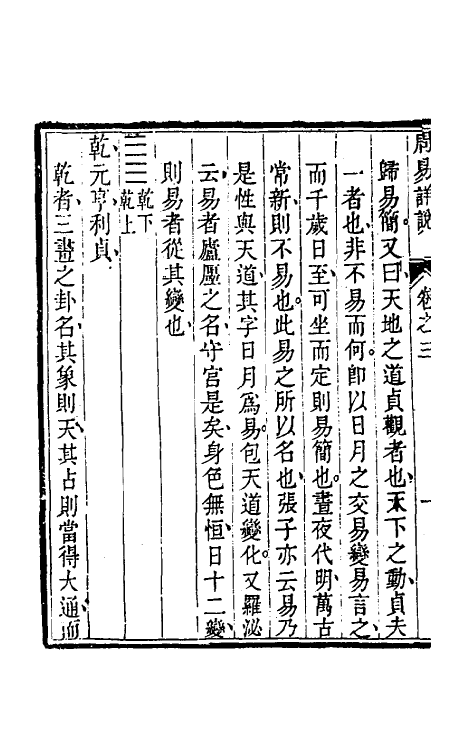 周易詳說 卷之三 一
歸易簡又曰天地之道貞觀者也天下之動貞夫
一者也非不易而何卽以日月之交易變易言之
而千歲日至可坐而定則易簡也晝夜代明萬古
常新則不易也此易之所以名也張子亦云易乃
是性與天道其字日月爲易包天道變化又羅泌
云易者廬𧓎之名守宮是矣身色無恒日十二變
則易者從其變也
乾下
乾上
乾元亨利貞
乾者三畫之卦名其象則天其占則當得大通而